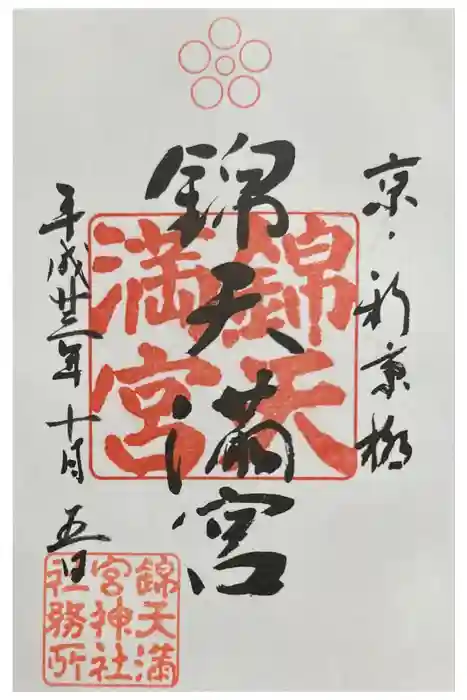 京・新京極
錦天満宮
錦天
満宮
平成廿三年十月五日
錦天満
宮神社
社務所